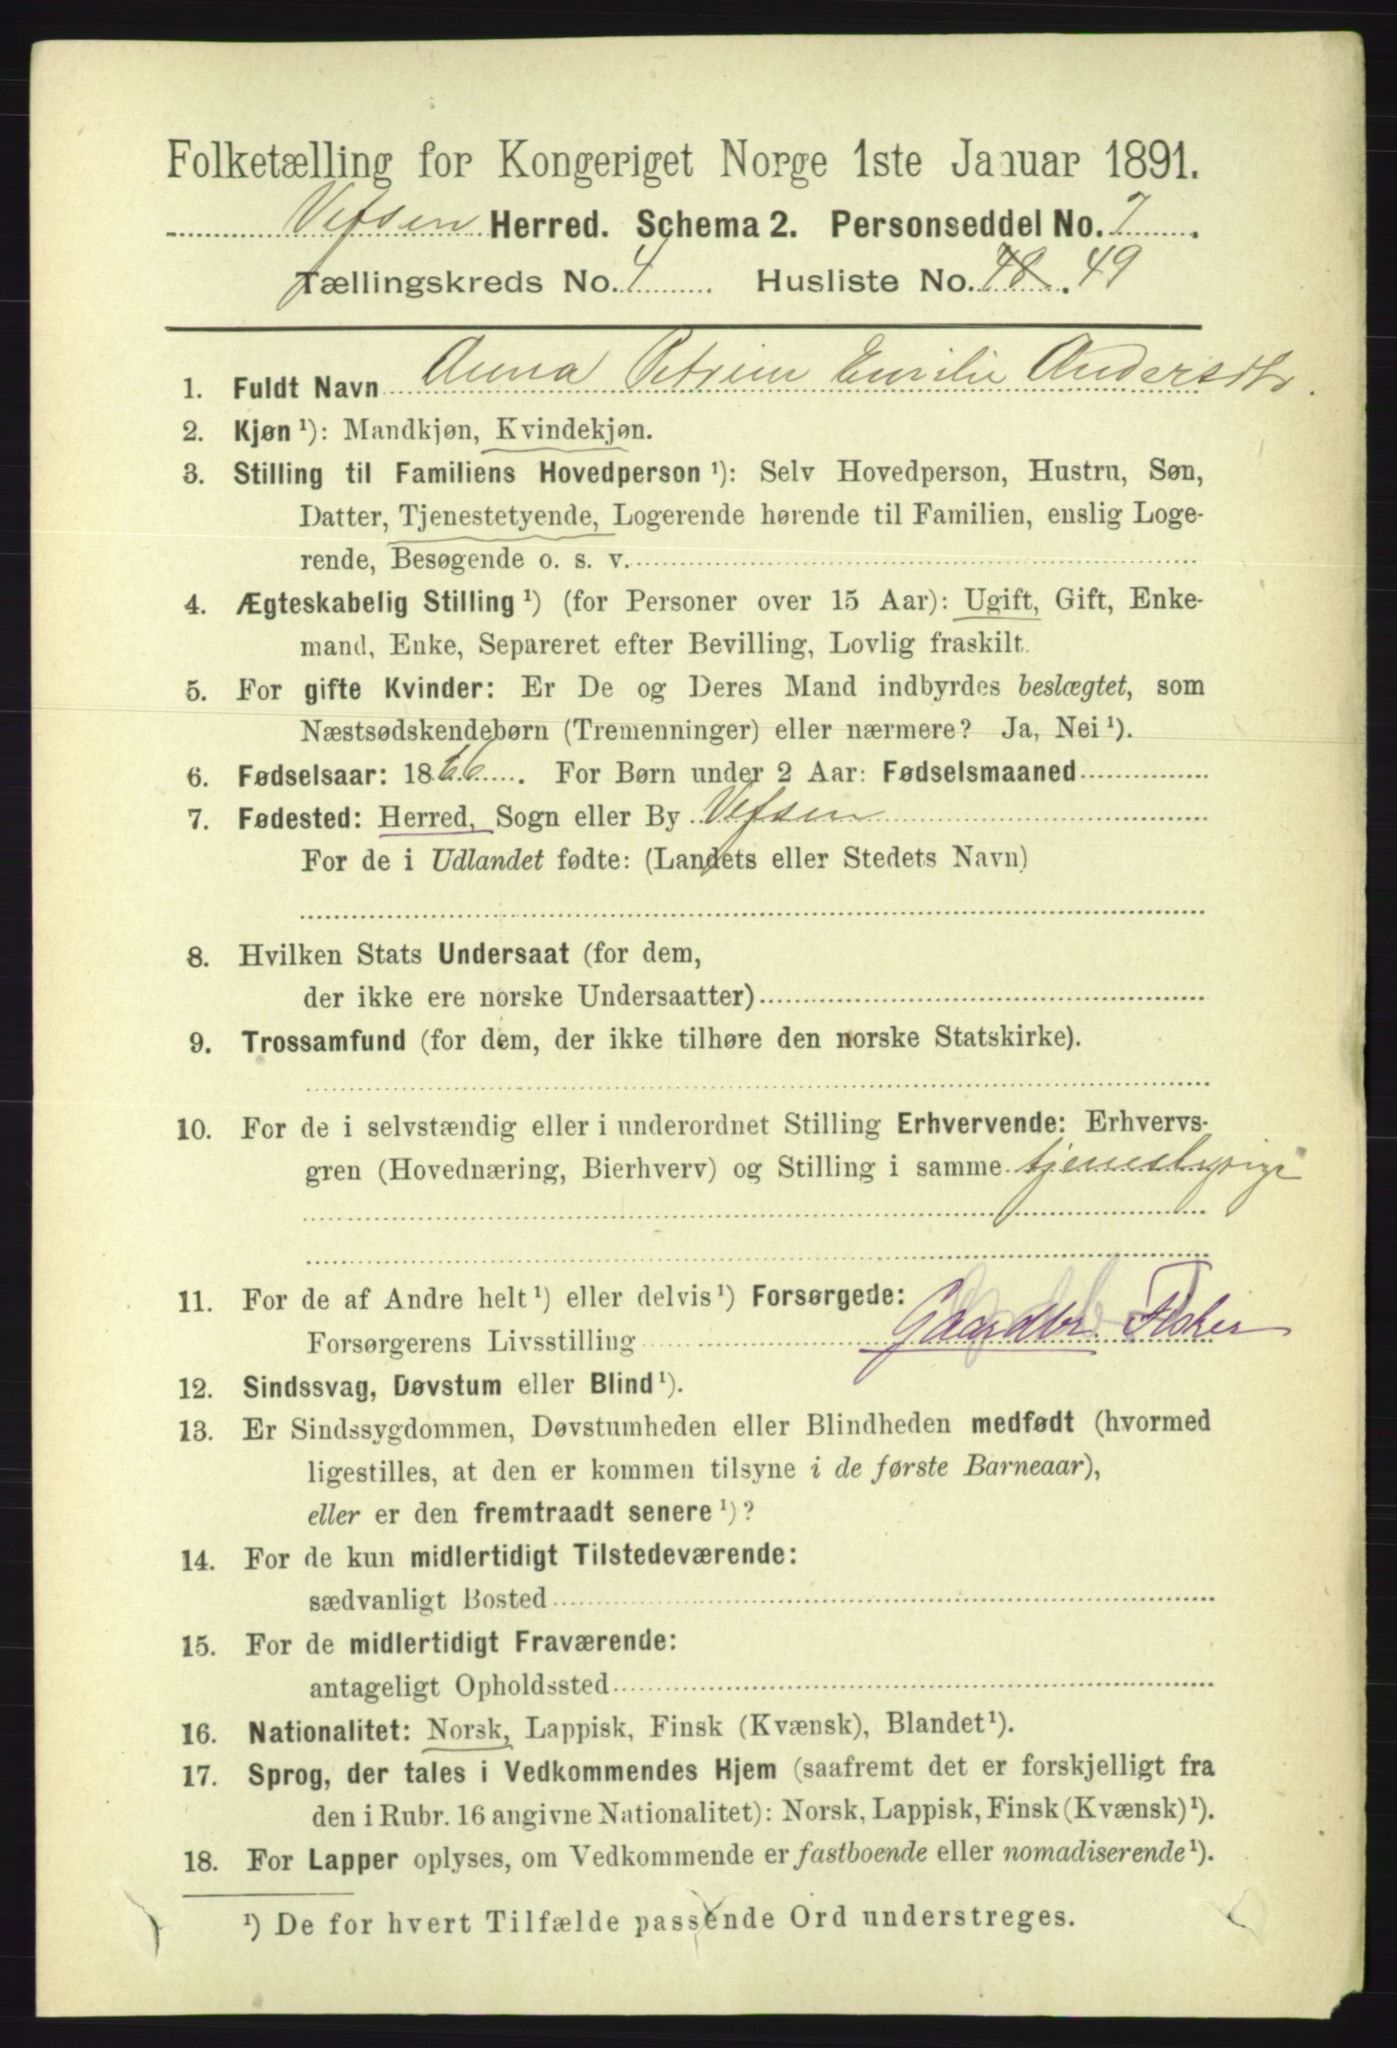 Folketælling for Kongeriget Norge 1ste Januar 1891.
Vefsen Herred. Schema 2. Personseddel No. 7.
Tællingskreds No. 4 Husliste No. 48. 49
1. Fuldt Navn Anna Petrine Emilie Andersdtr.
2. Kjøn ¹): Mandkjøn, Kvindekjøn.
3. Stilling til Familiens Hovedperson ¹): Selv Hovedperson, Hustru, Søn,
Datter, Tjenestetyende, Logerende hørende til Familien, enslig Loge-
rende, Besøgende o. s. v.
4. Ægteskabelig Stilling ¹) (for Personer over 15 Aar): Ugift, Gift, Enke-
mand, Enke, Separeret efter Bevilling, Lovlig fraskilt.
5. For gifte Kvinder: Er De og Deres Mand indbyrdes beslægtet, som
Næstsødskendebørn (Tremenninger) eller nærmere? Ja, Nei ¹).
6. Fødselsaar: 1866. For Børn under 2 Aar: Fødselsmaaned
7. Fødested: Herred, Sogn eller By Vefsen
For de i Udlandet fødte: (Landets eller Stedets Navn)
8. Hvilken Stats Undersaat (for dem,
der ikke ere norske Undersaatter)
9. Trossamfund (for dem, der ikke tilhøre den norske Statskirke).
10. For de i selvstændig eller i underordnet Stilling Erhvervende: Erhvervs-
gren (Hovednæring, Bierhverv) og Stilling i samme tjenestepige
11. For de af Andre helt ¹) eller delvis ¹) Forsørgede:
Forsørgerens Livsstilling Gaardbr. Fisker
12. Sindssvag, Døvstum eller Blind ¹).
13. Er Sindssygdommen, Døvstumheden eller Blindheden medfødt (hvormed
ligestilles, at den er kommen tilsyne i de første Barneaar),
eller er den fremtraadt senere ¹)?
14. For de kun midlertidigt Tilstedeværende:
sædvanligt Bosted
15. For de midlertidigt Fraværende:
antageligt Opholdssted
16. Nationalitet: Norsk, Lappisk, Finsk (Kvænsk), Blandet ¹).
17. Sprog, der tales i Vedkommendes Hjem (saafremt det er forskjelligt fra
den i Rubr. 16 angivne Nationalitet): Norsk, Lappisk, Finsk (Kvænsk) ¹).
18. For Lapper oplyses, om Vedkommende er fastboende eller nomadiserende ¹).
¹) De for hvert Tilfælde passende Ord understreges.